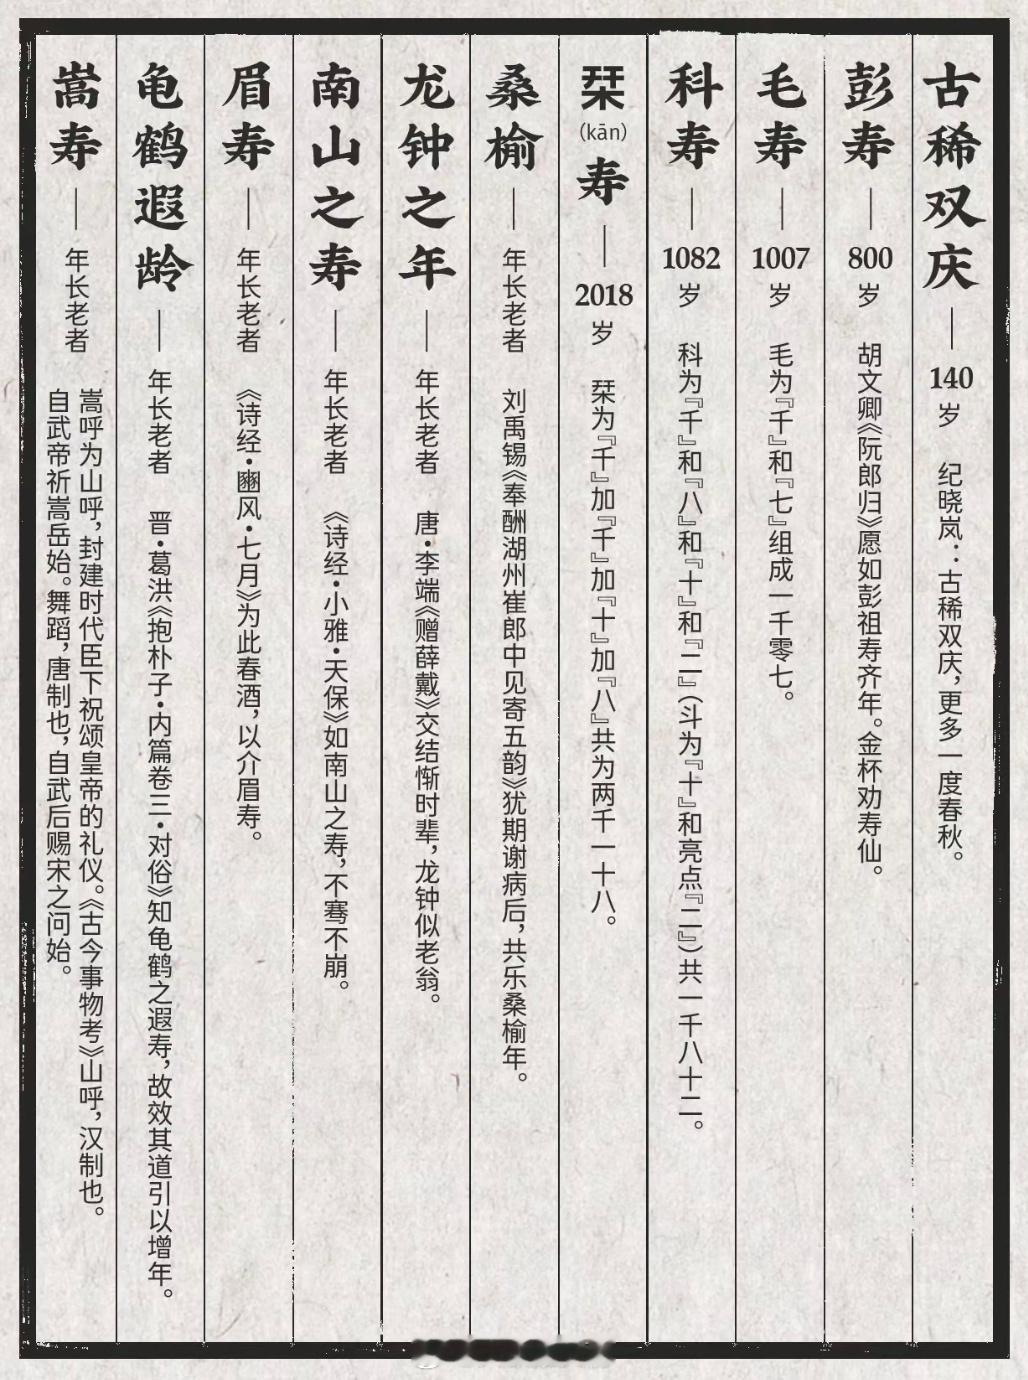 古稀双庆——140岁 纪晓岚：古稀双庆，更多一度春秋。
彭寿——800岁 胡文卿《阮郎归》愿如彭祖寿齐年。金杯劝寿仙。
毛寿——1007岁 毛为『千』和『七』组成一千零七。
科寿——1082岁 科为『千』和『八』和『十』和『二』（斗为『十』和亮点『二』）共一千八十二。
栞(kān)寿——2018岁 栞为『千』加『千』加『十』加『八』共为两千一十八。
桑榆——年长老者 刘禹锡《奉酬湖州崔郎中见寄五韵》犹期谢病后，共乐桑榆年。
龙钟之年——年长老者 唐·李端《赠薛戴》交结惭时辈，龙钟似老翁。
南山之寿——年长老者 《诗经·小雅·天保》如南山之寿，不骞不崩。
眉寿——年长老者 《诗经·豳风·七月》为此春酒，以介眉寿。
龟鹤遐龄——年长老者 晋·葛洪《抱朴子·内篇卷三·对俗》知龟鹤之遐寿，故效其道引以增年。
嵩寿——年长老者 嵩呼为山呼，封建时代臣下祝颂皇帝的礼仪。《古今事物考》山呼，汉制也。
自武帝祈嵩岳始。舞蹈，唐制也，自武后赐宋之问始。